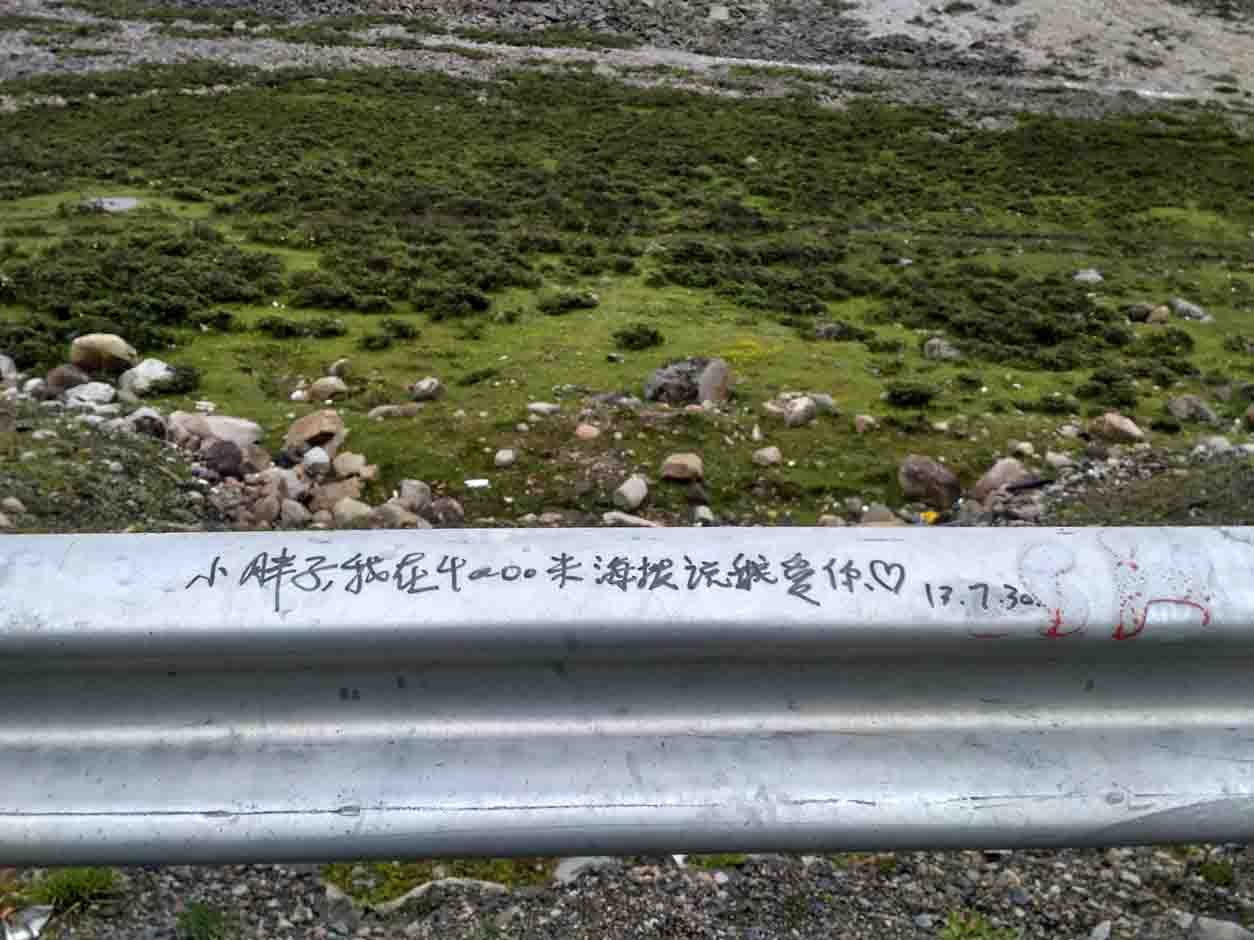 小胖子,我在4000米海拔说我爱你♡ 17.7.30.